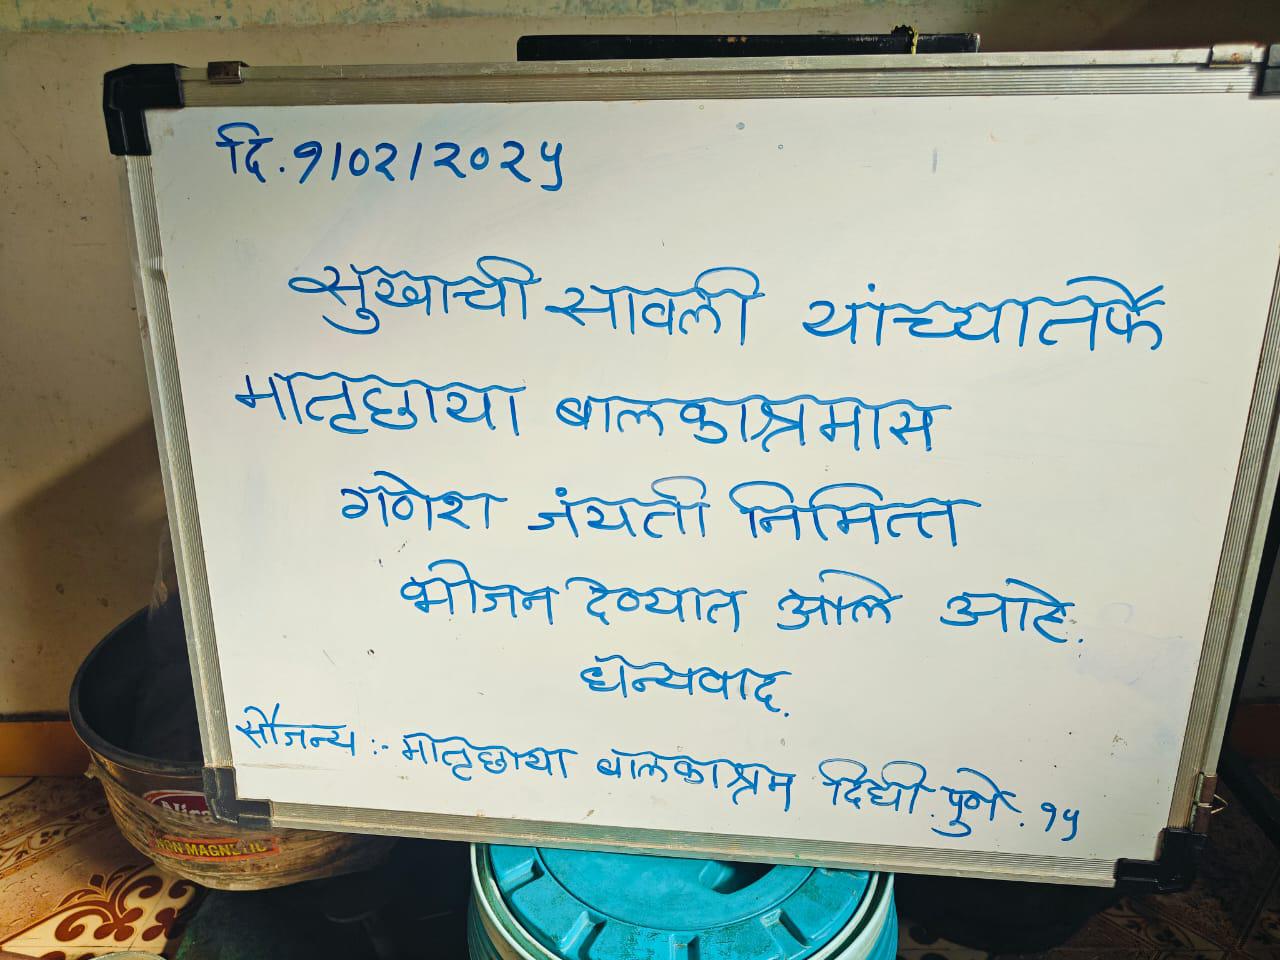 दि.१/०२/२०२५
सुखाची सावली यांच्यातर्फे
मातृछाया बालकाश्रमास
गणेश जंयती निमित्त
भोजन देण्यात आले आहे.
धन्यवाद.
सौजन्य :- मातृछाया बालकाश्रम दिघी.पुणे.१५
NON MAGNETIC